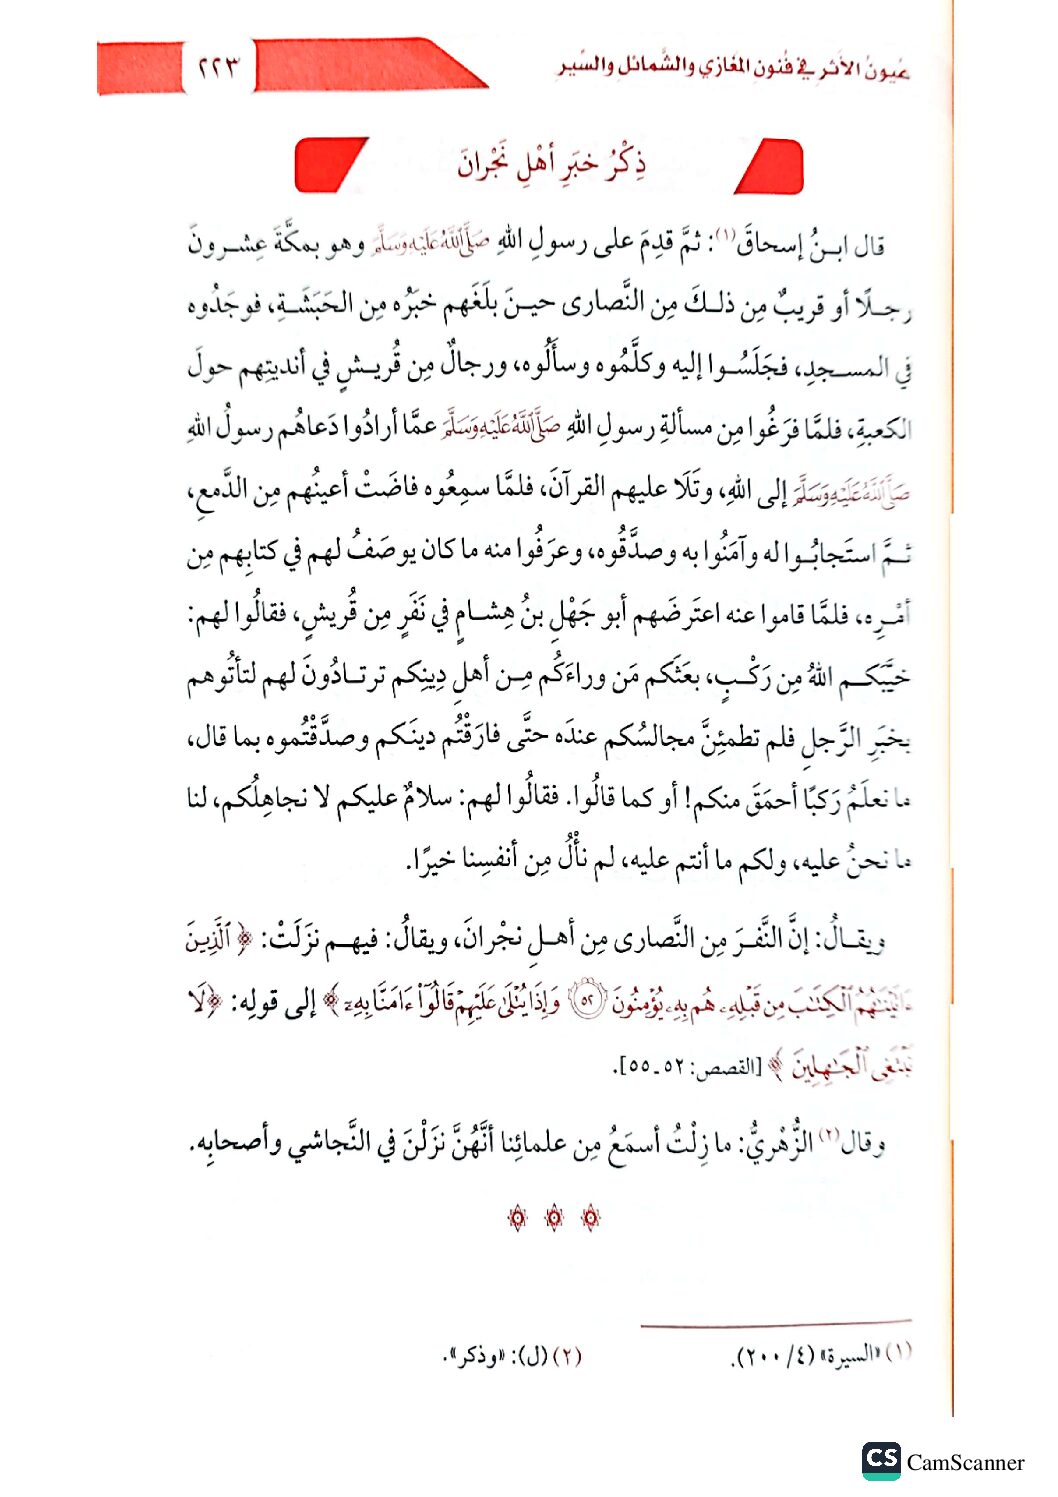 عُيونُ الأثر في فُنونِ المَغازي والشَّمائل والسِّير
٢٢٣
ذِكْرُ خبَرِ أهْلِ نَجْرانَ
قال ابـنُ إسحاقَ(١): ثمَّ قدِمَ على رسولِ اللهِ صَلَّى اللَّهُ عَلَيْهِ وَسَلَّمَ وهو بمكَّةَ عِشـرونَ
رجـلًا أو قريبٌ مِن ذلـكَ مِن النَّصارى حيـنَ بلَغَهم خبَرُه مِن الحَبَشَـةِ، فوجَدُوه
في المسـجدِ، فجَلَسُـوا إليه وكلَّمُوه وسألُوه، ورجالٌ مِن قُريشٍ في أنديتِهم حولَ
الكعبةِ، فلمَّا فرَغُوا مِن مسألةِ رسولِ اللهِ صَلَّى اللَّهُ عَلَيْهِ وَسَلَّمَ عمَّا أرادُوا دَعاهُم رسولُ اللهِ
صَلَّى اللَّهُ عَلَيْهِ وَسَلَّمَ إلى اللهِ، وتَلَا عليهم القرآنَ، فلمَّا سمِعُوه فاضَتْ أعينُهم مِن الدَّمعِ،
ثـمَّ استَجابُـوا له وآمَنُوا به وصدَّقُوه، وعرَفُوا منه ما كان يوصَفُ لهم في كتابِهم مِن
أمْـرِه، فلمَّا قاموا عنه اعترَضَهم أبو جَهْلِ بنُ هِشـامٍ في نَفَرٍ مِن قُريشٍ، فقالُوا لهم:
خيَّبَكـم اللهُ مِن رَكْـبٍ، بعَثَكم مَن وراءَكُم مِـن أهلِ دِينِكم ترتـادُونَ لهم لتأتُوهم
بخبَرِ الرَّجلِ فلم تطمئِنَّ مجالسُكم عندَه حتَّى فارَقْتُم دينَكم وصدَّقْتُموه بما قال،
ما نعلَمُ رَكبًا أحمَقَ منكم! أو كما قالُوا. فقالُوا لهم: سلامٌ عليكم لا نجاهِلُكم، لنا
ما نحنُ عليه، ولكم ما أنتم عليه، لم نأْلُ مِن أنفسِنا خيرًا.
ويقـالُ: إنَّ النَّفـرَ مِن النَّصارى مِن أهـلِ نجْرانَ، ويقالُ: فيهـم نزَلَتْ: ﴿ ٱلَّذِينَ
ءَاتَيْنَٰهُمُ ٱلْكِتَٰبَ مِن قَبْلِهِۦ هُم بِهِۦ يُؤْمِنُونَ ۝٥٢ وَإِذَا يُتْلَىٰ عَلَيْهِمْ قَالُوٓا۟ ءَامَنَّا بِهِۦٓ ﴾ إلى قولِه: ﴿لَا
نَبْتَغِى ٱلْجَٰهِلِينَ ﴾ [القصص: ٥٢ـ٥٥].
وقال(٢) الزُّهْريُّ: ما زِلْتُ أسمَعُ مِن علمائِنا أنَّهُنَّ نزَلْنَ في النَّجاشي وأصحابِه.
(١) «السيرة» (٤/ ٢٠٠).
(٢) (ل): «وذكر».
CS CamScanner